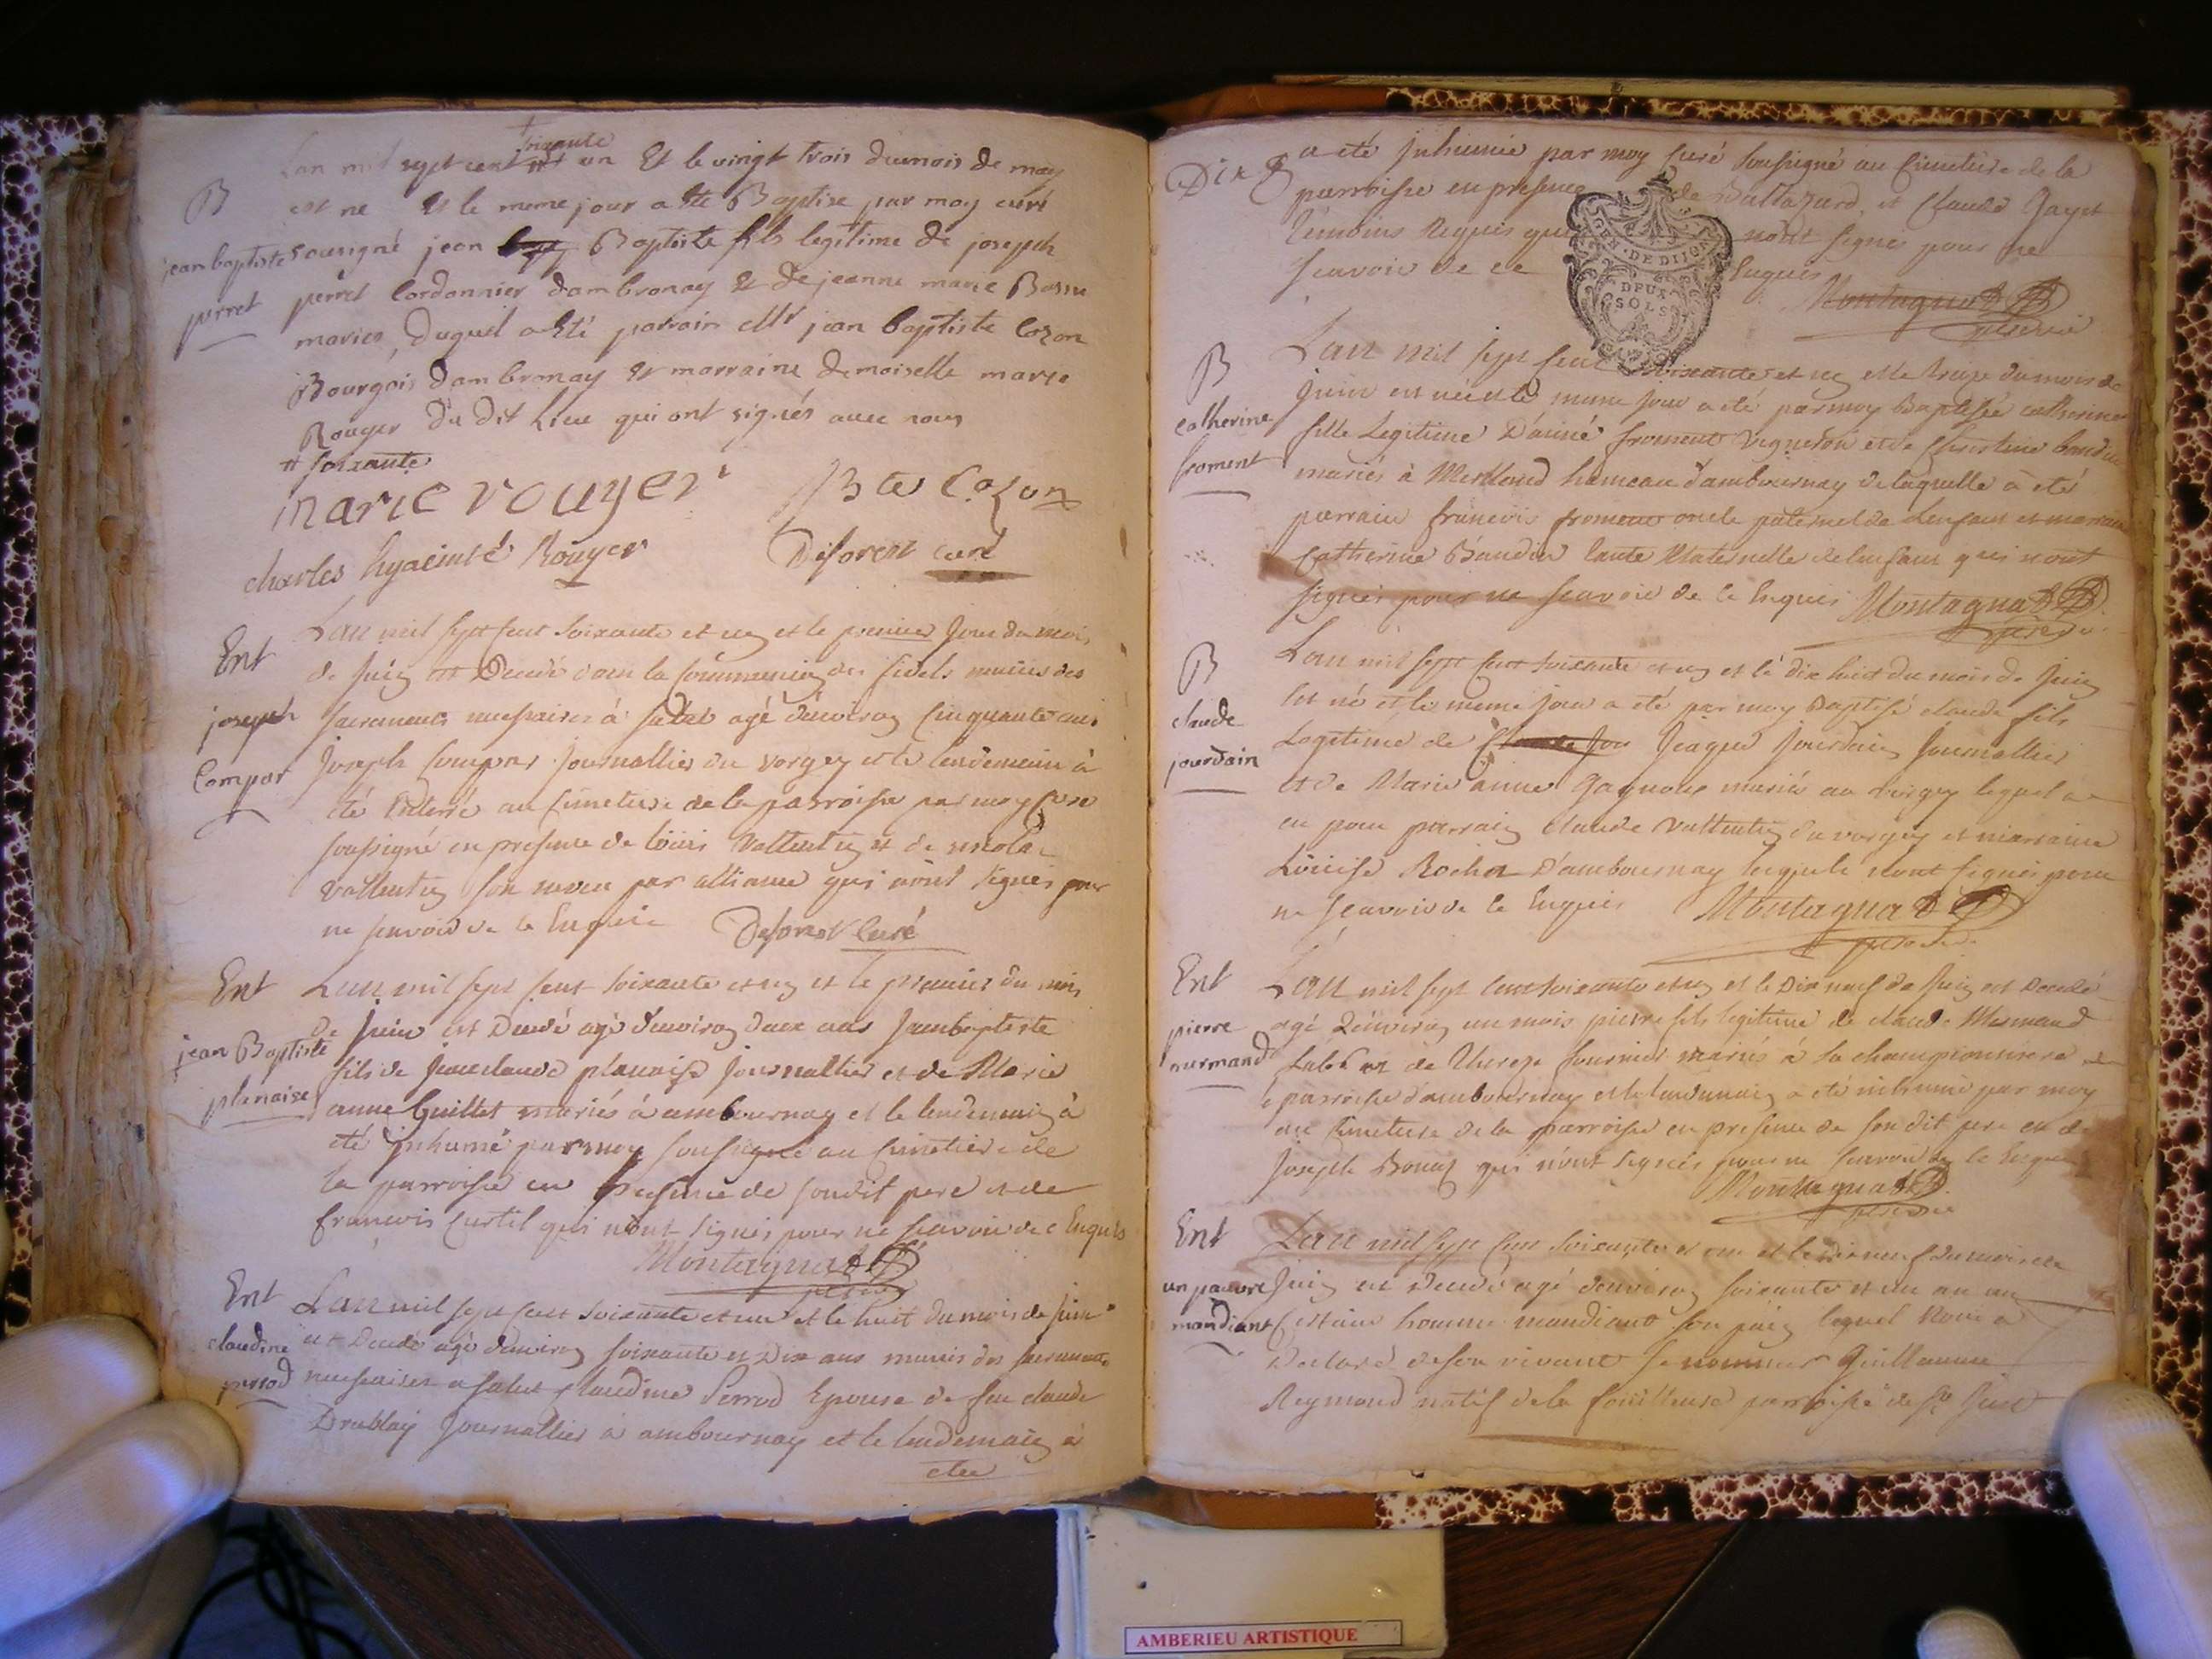 Lan mil sept cent # un Et le vingt trois dumois de may
soixante
B
est ne Et le meme jour a Eté Baptise par moy curé
jean baptiste sousigné jean Baptiste fils legitime de joseph
perret
perret Cordonnier dambronay Et de jeanne marie
maries, Duquel a Eté parrain Mr jean baptiste Cozon
Bourgois Dambronay Et marraine Demoiselle marie
Rouyer du dit Lieu qui ont signés avec nous
# soixante
marie rouyer
Bte Cozon
charles hyacinte Rouyer
Deforest curé
Ent
Lan mil sept cent soixante et un et le premier jour du mois
de juin est Decedé dans la Communion des fidels munies des
joseph
sacrements necessaires à salut agé denviron cinquante ans
Compar
joseph Compar journallier du vorgey et le lendemain à
été Enterré au Cimetiere de la parroisse par moy Curé
soussigné en presence de louis Vallentin et de nicolas
Vallentin son neveu par alliance qui n'ont signés pour
ne scavoir de ce Enquis Deforest Curé
Ent
Lan mil sept cent soixante et un et le premier du mois
de juin est Decedé agé denviron deux ans jeanbaptiste
jean Baptiste
plenaise
fils de jean claude planaise journallier et de Marie
anne Guillet mariés à ambournay et le lendemain à
été inhumé par moy soussigné au Cimetiere de
la parroisse en presence de son dit pere et de
francois Curtil qui n'ont signés pour ne scavoir de c Enquis
Montagnat
Ent
Lan mil sept cent soixante et un et le huit du mois de juin
claudine
est Decedé agé denviron soixante et Dix ans munis des sacrements
perrod
necessaires a salut Claudine Perrod Epouse de feu claude
Drublay journallier à ambournay et le lendemain à
etee
Dix
a eté inhumée par moy Curé soussigné au Cimetiere de la
parroisse en presence de Baltazard et Claude Gayet
temoins Requis qui n'ont signés pour ne
scavoir de ce Enquis
GEN. DE DIJON
DEUX
SOLS
Montagnat
B
Lan mil sept cent soixante et un et le treize du mois de
juin est née et le meme jour a eté par moy Baptisée catherine
catherine
froment
fille Legitime D'aimé froment Vigneron et de Christine baudin
mariés à Merlland hameau d'ambournay de laquelle a eté
parrain francois froment oncle paternel de Lenfant et marraine
Catherine Baudin tante Maternelle de lenfant qui n'ont
signés pour ne scavoir de ce Enquis Montagnat
B
Lan mil sept cent soixante et un et le dix huit du mois de juin
claude
Est né et le meme jour a eté par moy Baptisé claude fils
jourdain
Legitime de Jaque jourdain journallier
et de Marie anne Gagnoux mariés au vorgey lequel a
eu pour parrain claude Vallentin du vorgey et marraine
Louise Rochet D'ambournay lequels n'ont signés pour
ne scavoir de ce Enquis Montagnat
Ent
Lan mil sept cent soixante et un et le Dix neuf de juin est Decedé
pierre
agé d'environ un mois pierre fils legitime de claude
de Thereze fournier mariés à la championniere
parroisse d'ambournay et le lendemain a eté inhumé par moy
au Cimetiere de la parroisse en presence de son dit pere et de
joseph Bonaz qui n'ont signés pour ne scavoir de ce Enquis
Montagnat
Ent
Lan mil sept cent soixante et un et le dix neuf du mois de
un pauvre
juin est Decedé agé denviron soixante et un an un
mandiant
Certain homme mandiant son pain lequel nous a
Declaré de son vivant se nommer Guillaume
Reymond natif de la fouilleuse parroisse de St just
AMBERIEU ARTISTIQUE